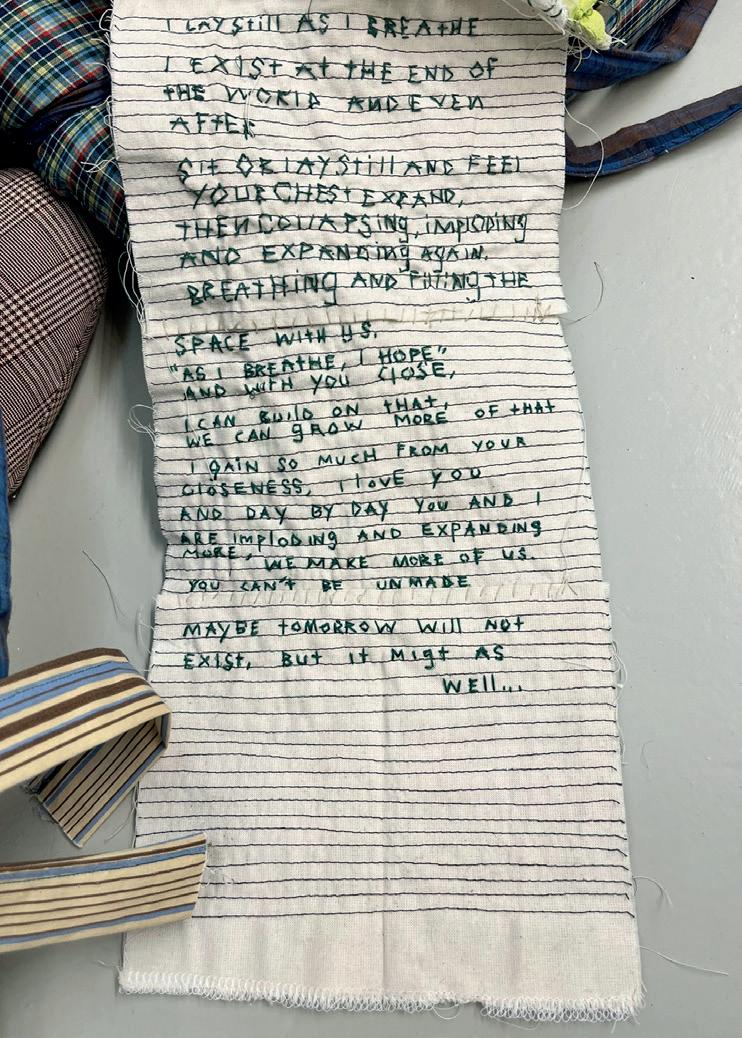 I LAY StiLL AS I BREAtHE
I EXISt At tHE END OF
tHE WORlD AND EVEN
AFtER
Sit OR lAY Still AND FEEl
YOUR CHESt EXPAND,
tHEN COllAPSing, iMPlODiNg
AND EXPANDing AgAiN.
BREATHiNg AND FilliNg tHE
SPACE WitH US.
"AS I BREAtHE, I HOPE"
AND WitH YOU ClOSE,
I CAN BUilD ON tHAt,
WE CAN gROW MORE OF tHAt
I gAiN SO MUCH FROM YOUR
ClOSENESS, I lOVE YOU
AND DAY BY DAY YOU AND I
ARE iMPlODiNg AND EXPANDiNg
MORE, WE MAKE MORE OF US.
YOU CAN't BE UNMADE
MAYBE tOMORROW Will NOt
EXiSt, BUt it Migt AS
WEll...